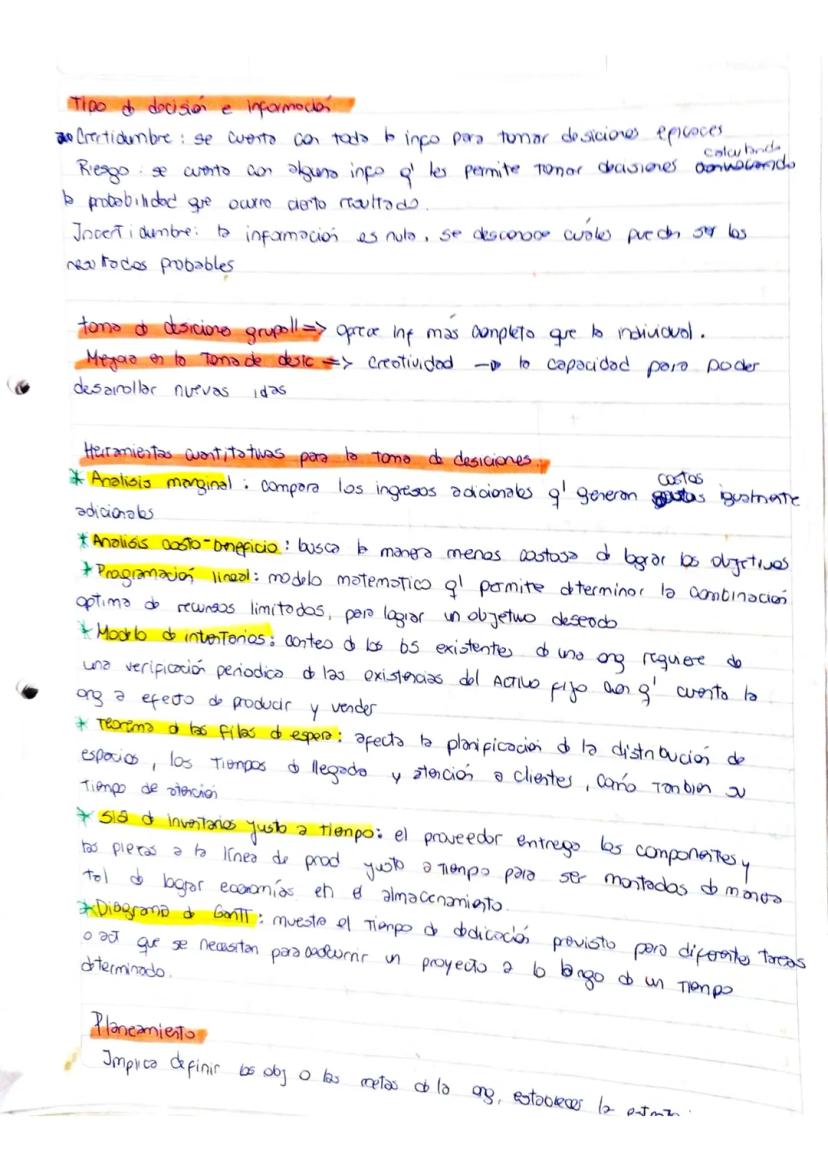 Tipo d decisión e información
Certidumbre: se cuenta con toda la info para tomar desiciones eficaces
Riesgo: se cuenta con alguna info q' les permite tomar decisiones calculando
la probabilidad que ocurra cierto resultado.
Incertidumbre: la información es nula, se desconoce cuáles pueden ser los
resultados probables
toma d desiciones grupal => ofrece inf más completa que la individual.
Mejora en la toma de desic => creatividad → la capacidad para poder
desarrollar nuevas idas
Herramientas cuantitativas para la toma d desiciones.
* Analisis marginal: compara los ingresos adicionales q' generan costos igualmente
adicionales
* Analisis costo-beneficio: busca la manera menos costosa d lograr los objetivos
* Programación lineal: modelo matematico q' permite determinar la combinación
optima de recursos limitados, para lograr un objetivo deseado
* Modelo d inventarios: conteo d los bs existentes d una org requiere de
una verificación periodica d las existencias del Activo fijo con q' cuenta la
org a efecto de producir y vender
* Teorema d las filas d espera: afecta la planificación d la distribución de
espacios, los tiempos d llegada y atención a clientes, como tanbien su
tiempo de atención
* Sis d inventarios justo a tiempo: el proveedor entrega los componentes y
las piezas a la línea de prod justo a tiempo para ser montadas d manera
tal d lograr economías en el almacenamiento.
* Diagrama d Gantt: muestra el tiempo de dedicación previsto para diferentes tareas
o act que se necesitan para un proyecto a lo largo d un tiempo
determinado.
Planeamiento
Implica definir los obj o las metas d la org, establecer la